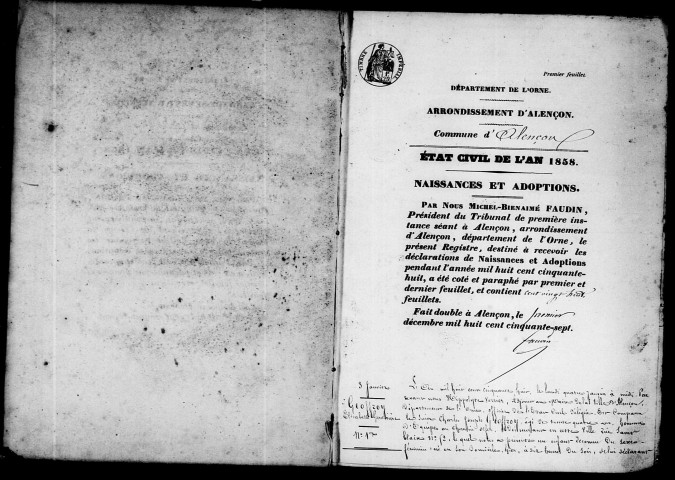 TIMBRE IMPÉRIAL
Premier feuillet
DÉPARTEMENT DE L'ORNE.
ARRONDISSEMENT D'ALENÇON.
Commune d'Alençon
ÉTAT CIVIL DE L'AN 1858.
NAISSANCES ET ADOPTIONS.
PAR NOUS MICHEL-BIENAIMÉ FAUDIN,
Président du Tribunal de première ins-
tance séant à Alençon, arrondissement
d'Alençon, département de l'Orne, le
présent Registre, destiné à recevoir les
déclarations de Naissances et Adoptions
pendant l'année mil huit cent cinquante-
huit, a été coté et paraphé par premier et
dernier feuillet, et contient cent vingt huit
feuillets.
Fait double à Alençon, le premier
décembre mil huit cent cinquante-sept.
Faudin
3 janvier
Geoffroy
N° 1er
L'An mil huit cent cinquante huit, le lundi quatre janvier à midi, Par
devant nous Hippolyte
Département de l'Orne, officier de l'Etat Civil délégué, Est Comparu
le sieur Charles Joseph Geoffroy, âgé de
demeurant en cette Ville rue Saint
Blaise N° 2, lequel nous a présenté un enfant reconnu du sexe
féminin né en son domicile, hier, à dix heures du soir, de lui déclarant